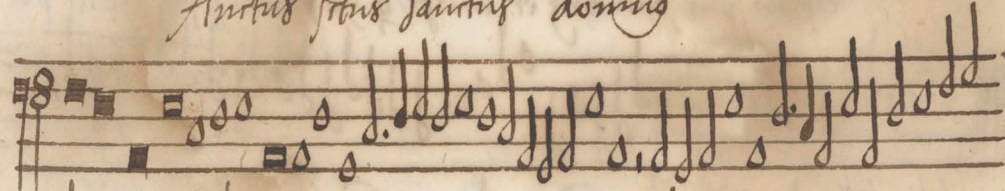 Sanctus sctus sanctus dominus